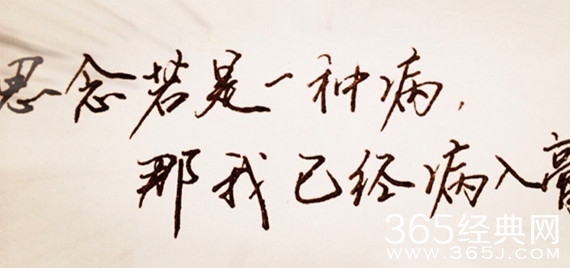 思念若是一种病,
那我已经病入膏
365经典网
www.365J.com